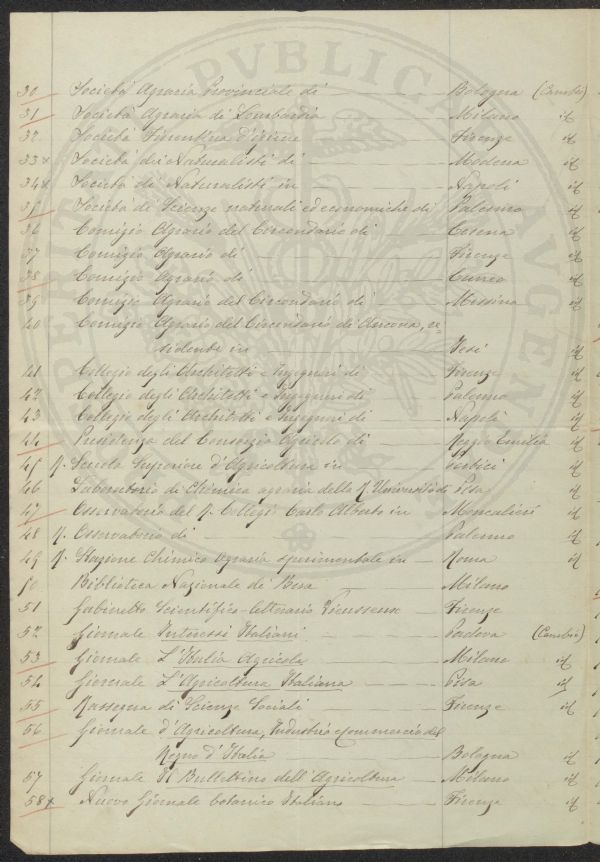 30 Società Agraria Provinciale di — Bologna (Cambi)
31 Società Agraria di Lombardia — Milano id
32 Società Fiorentina d'igiene — Firenze id
33 x Società dei Naturalisti di — Modena id
34 x Società di Naturalisti in — Napoli id
35 Società di Scienze naturali ed economiche di Palermo id
36 Comizio Agrario del Circondario di Cesena id
37 Comizio Agrario di — Firenze id
38 Comizio Agrario di — Cuneo id
39 Comizio Agrario del Circondario di — Messina id
40 Comizio Agrario del Circondario di Ancona, re=
sidente in — Jesi id
41 Collegio degli Architetti e Ingegneri di Firenze id
42 Collegio degli Architetti e Ingegneri di — Palermo id
43 Collegio degli Architetti e Ingegneri di — Napoli id
44 Presidenza del Consorzio Agricolo di — Reggio Emilia id
45 R. Scuola Superiore d'Agricoltura in — Portici id
46 Laboratorio di Chimica agraria della R. Università di Pisa id
47 Osservatorio del R. Collegio Carlo Alberto in Moncalieri id
48 R. Osservatorio di — Palermo id
49 R. Stazione Chimico Agraria sperimentale in — Roma id
50 Biblioteca Nazionale di Brera — Milano
51 Gabinetto Scientifico-letterario Vieusseux — Firenze
52 Giornale Interessi Italiani — Padova (Cambio)
53 Giornale L'Italia Agricola — Milano id
54 Giornale L'Agricoltura Italiana — Pisa id
55 Rassegna di Scienze Sociali — Firenze id
56 Giornale d'Agricoltura, Industria e Commercio del
Regno d'Italia — Bologna id
57 Giornale Il Bullettino dell'Agricoltura — Milano id
58 x Nuovo Giornale botanico Italiano — Firenze id
PVBLICAE AVGEND
PERITA